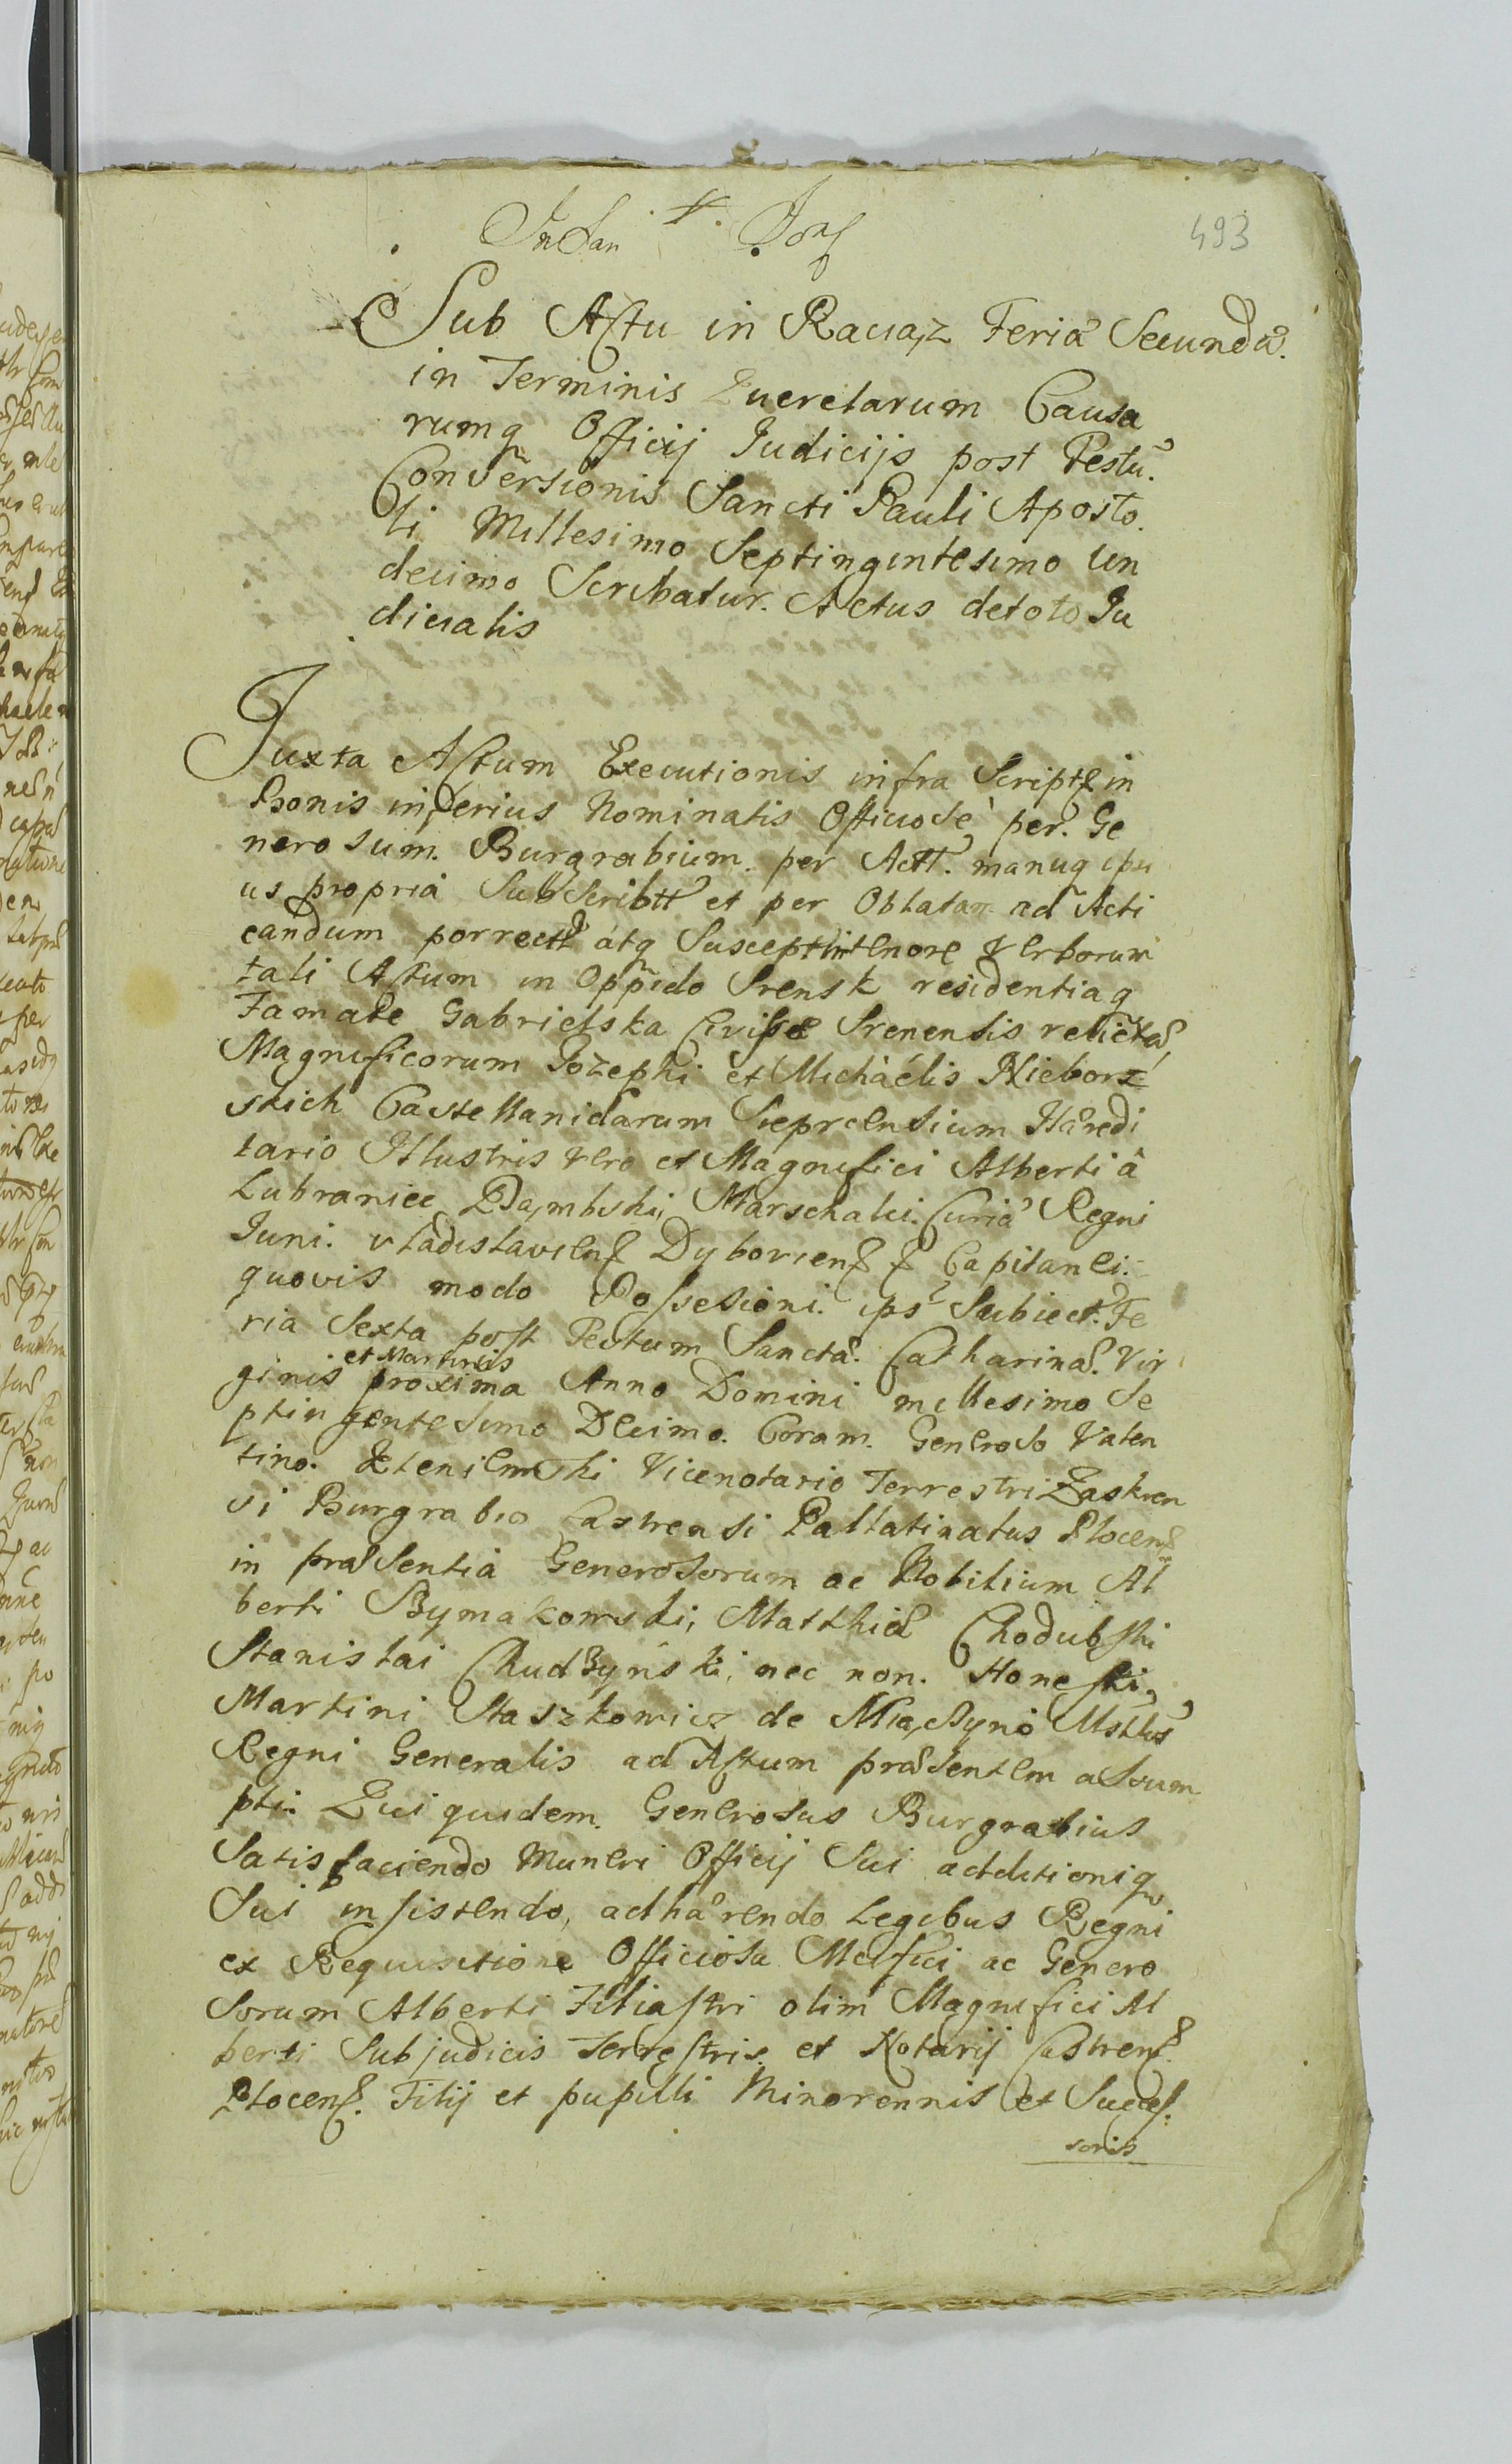 493
Sub Actu in Raciąz Feria Secunda.
in Terminis Querelarum Causa
rumq Officij Judicijs post Festu.
Conversionis Sancti Pauli Aposto.
li Millesimo Septingintesimo Un
decimo Scribatur. Actus de toto Ju
dicialis
Juxta Actum Executionis infra Script in
Bonis inferius Nominatis Officiose per. Ge
nerosum. Burgrabium. per Actt. manuq ipsi
us propria Subscribtt et per Oblatam ad Acti
candum porrectt atq Suscept in tenore Verborum
tali Actum in Oppido Srensk residentiaq
Famatae Gabrielska Civissae Srenensis relictae
Magnificorum Jozephi et Michaelis Nieborz
skich Castellanidarum Sieprcensium Haeredi
tario Illustris vero et Magnifici Alberti a
Lubraniec Dąmbski, Marschalci. Curia Regni
Juni. Vladislaviens Dyboviens Capitanei.
quovis modo Possesioni. ips Subiect. Fe
ria Sexta post Festum Sancta. Catharina. Vir
et Martiris
ginis proxima Anno Domini millesimo Se
ptin gentesimo Decimo. Coram. Generoso Valen
tino. Vicenotario Terrestri Zaskren
si Burgrabio Castrensi Pallatinatus Plocens
in praesentia Generosorum ac Nobilium Al
berti Bymakowski, Matthiae Chodubski
Stanislai Chudzynski, nec non. Honesti.
Martini Staszkowicz de Miączyno Mstlis
Regni Generalis ad Actum praesentem assum
pti. Qui quidem. Generosus Burgrabius
Satisfaciendo Muneri Officij Sui additioniq
Sui insistendo, adhaerendo Legibus Regni
ex Requisitione Officiosa Mcifici ac Genero
sorum Alberti Filiastri olim Magnifici Al
berti Subjudicis Terrestris. et Notarij Castrens.
Plocens. Filij et pupilli Minorennis et Succes.
soris